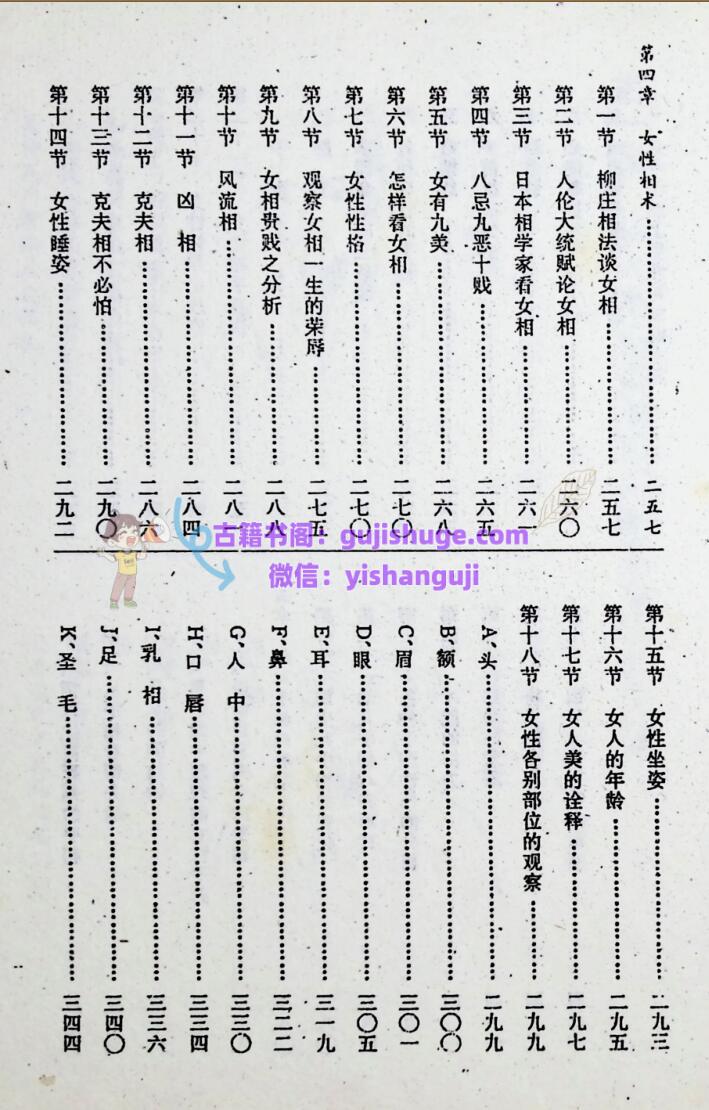 第四章 女性相术……二五七
第一节 柳庄相法谈女相……二五七
第二节 人伦大统赋论女相……二六〇
第三节 日本相学家看女相……二六一
第四节 八忌九恶十贱……二六五
第五节 女有九美……二六八
第六节 怎样看女相……二七〇
第七节 女性性格……二七〇
第八节 观察女相一生的荣辱……二七五
第九节 女相贵贱之分析……二八八
第十节 风流相……二八一
第十一节 凶相……二八四
第十二节 克夫相……二八六
第十三节 克夫相不必怕……二九〇
第十四节 女性睡姿……二九二
古籍书阁：gujishuge.com
微信：yishanguji
第十五节 女性坐姿……二九三
第十六节 女人的年龄……二九五
第十七节 女人美的诠释……二九七
第十八节 女性各别部位的观察……二九九
A、头……二九九
B、额……三〇〇
C、眉……三〇一
D、眼……三〇五
E、耳……三一九
F、鼻……三二二
G、人中……三三〇
H、口唇……三三四
I、乳相……三三六
J、足……三四〇
K、圣毛……三四四